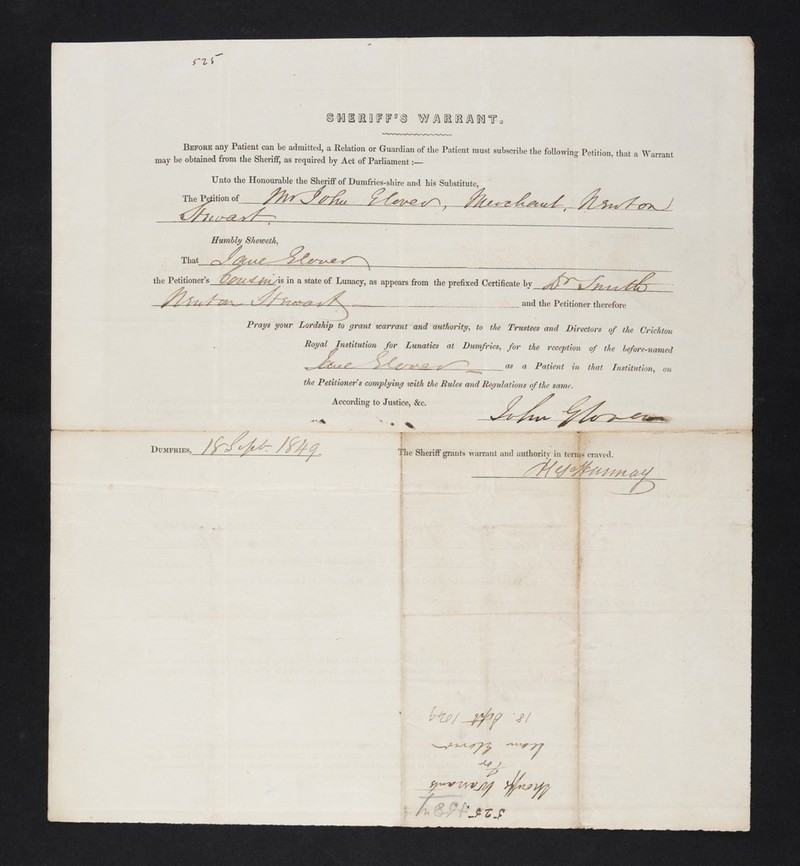 525
SHERIFF'S WARRANT.
BEFORE any Patient can be admitted, a Relation or Guardian of the Patient must subscribe the following Petition, that a Warrant
may be obtained from the Sheriff, as required by Act of Parliament :—
Unto the Honourable the Sheriff of Dumfries-shire and his Substitute,
The Petition of Mr John Glover, Merchant, Newton
Stewart
Humbly Sheweth,
That Jane Glover
the Petitioner's Cousin is in a state of Lunacy, as appears from the prefixed Certificate by Dr Smith
Newton Stewart and the Petitioner therefore
Prays your Lordship to grant warrant and authority, to the Trustees and Directors of the Crichton
Royal Institution for Lunatics at Dumfries, for the reception of the before-named
Jane Glover as a Patient in that Institution, on
the Petitioner's complying with the Rules and Regulations of the same.
According to Justice, &c.
John Glover
DUMFRIES, 18 Sept 1849
The Sheriff grants warrant and authority in terms craved.
Hannay
525
Sheriffs Warrant
for
Glover
18 Sept 1849